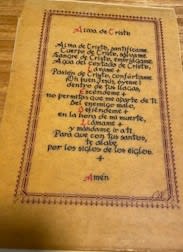 Alma de Cristo
Alma de Cristo, santifícame.
Cuerpo de Cristo, sálvame.
Sangre de Cristo, embriágame.
Agua del costado de Cristo,
Lávame +
Pasión de Cristo, confórtame
Oh buen Jesús, óyeme!
dentro de tus llagas,
Escóndeme +
no permitas que me aparte de Ti
Del enemigo malo,
Defiéndeme +
en la hora de mi muerte,
Llámame +
y mándame ir a ti
Para que con tus santos,
te alabe
por los siglos de los siglos.
+
Amén